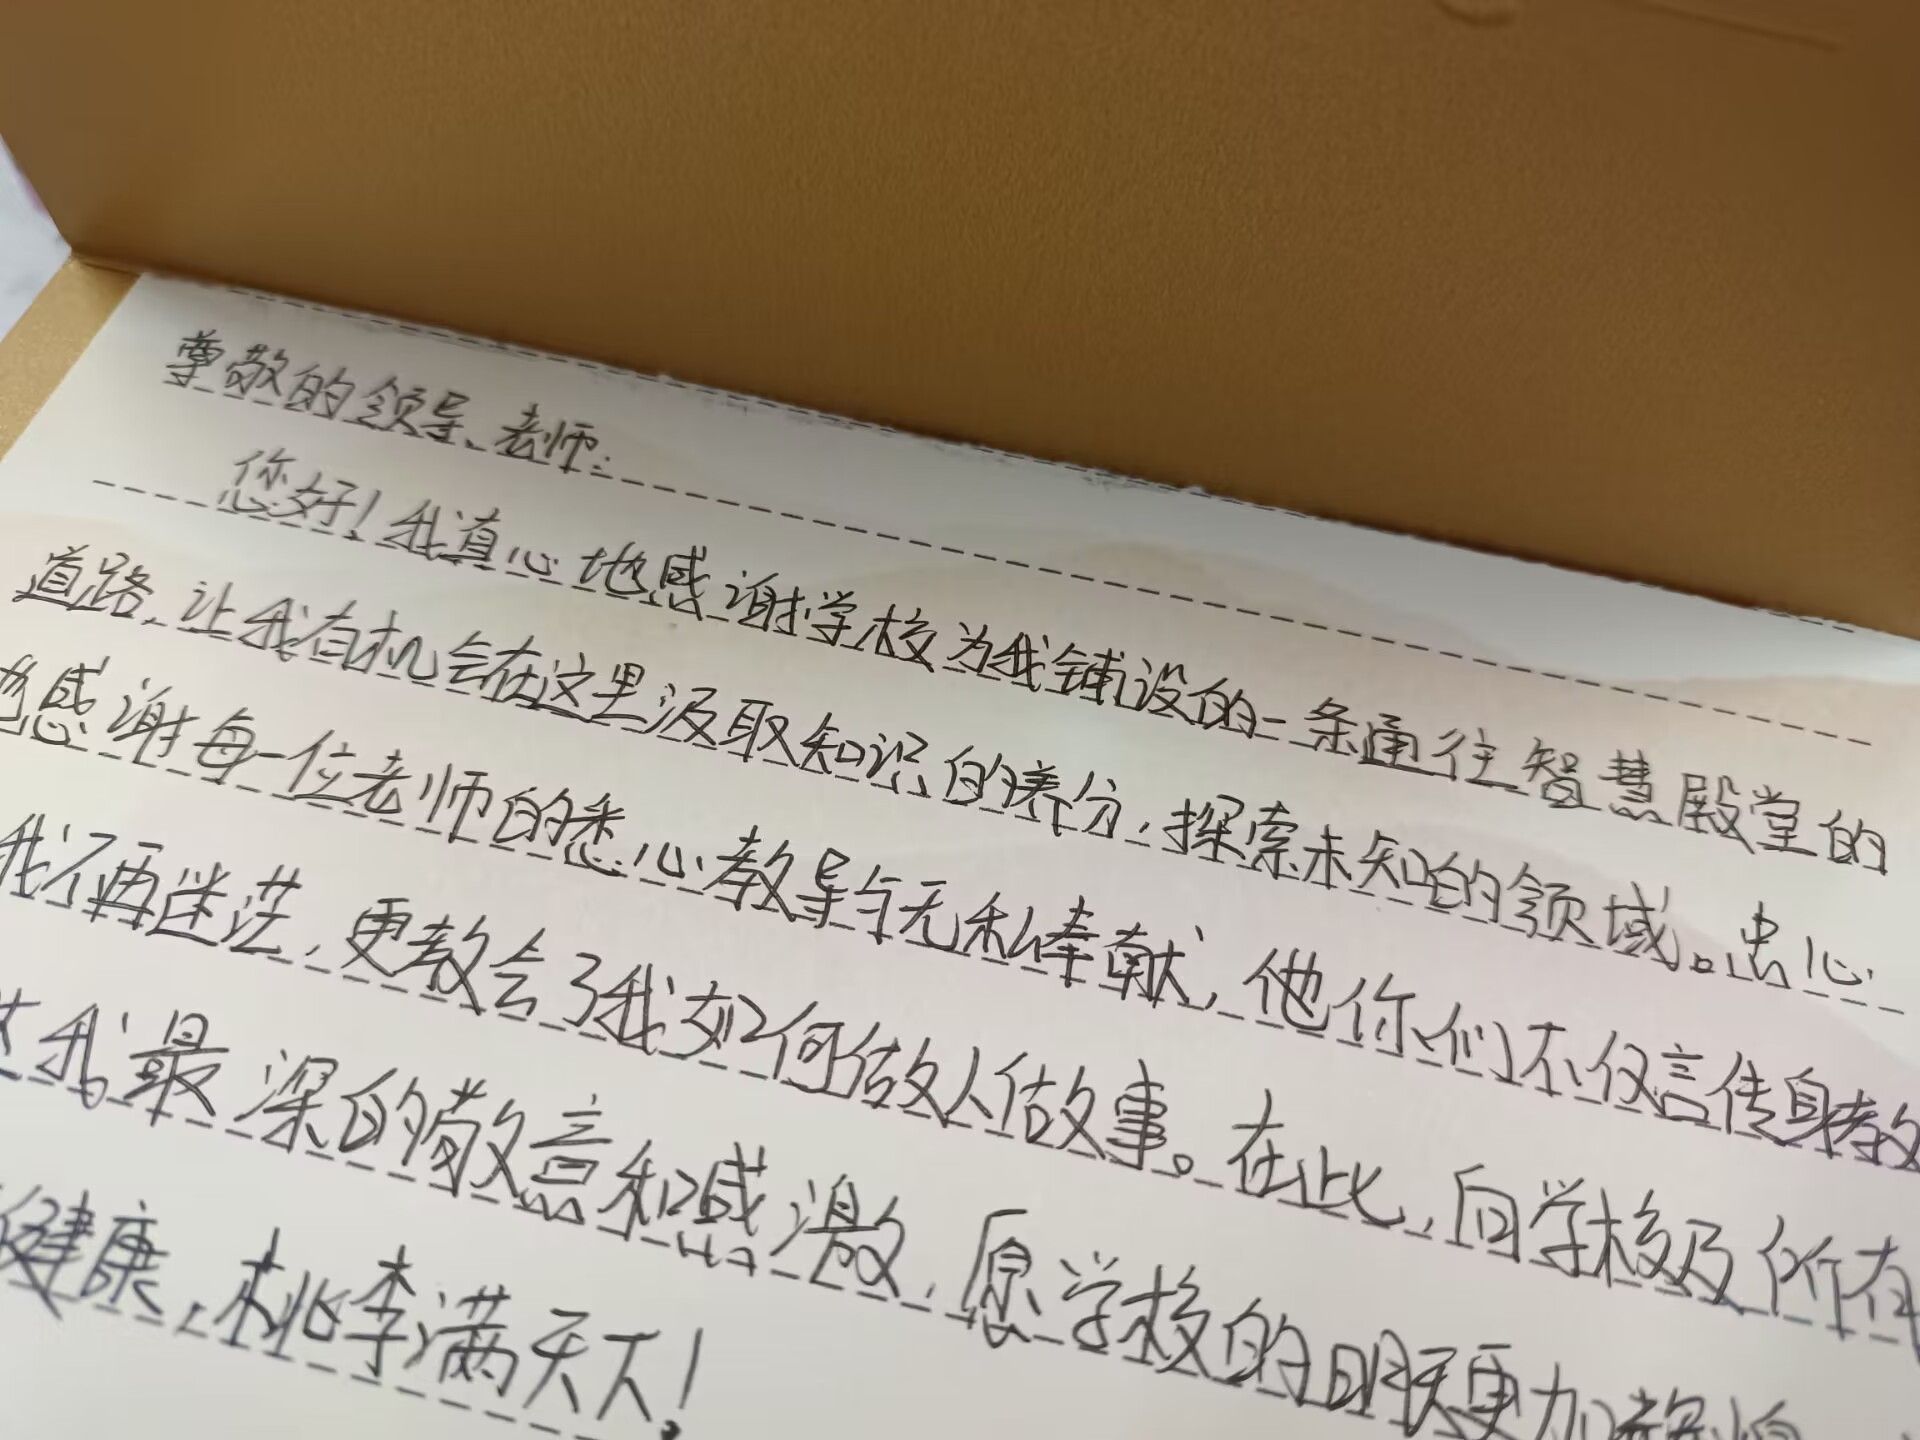 尊敬的领导、老师：
您好！我真心地感谢学校为我铺设的一条通往智慧殿堂的
道路，让我有机会在这里汲取知识的养分，探索未知的领域。忠心
地感谢每一位老师的悉心教导与无私奉献，他你们不仅言传身教
我不再迷茫，更教会了我如何做人做事。在此，向学校及所有
达我最深的敬意和感激，愿学校的明天更加辉煌
健康，桃李满天下！